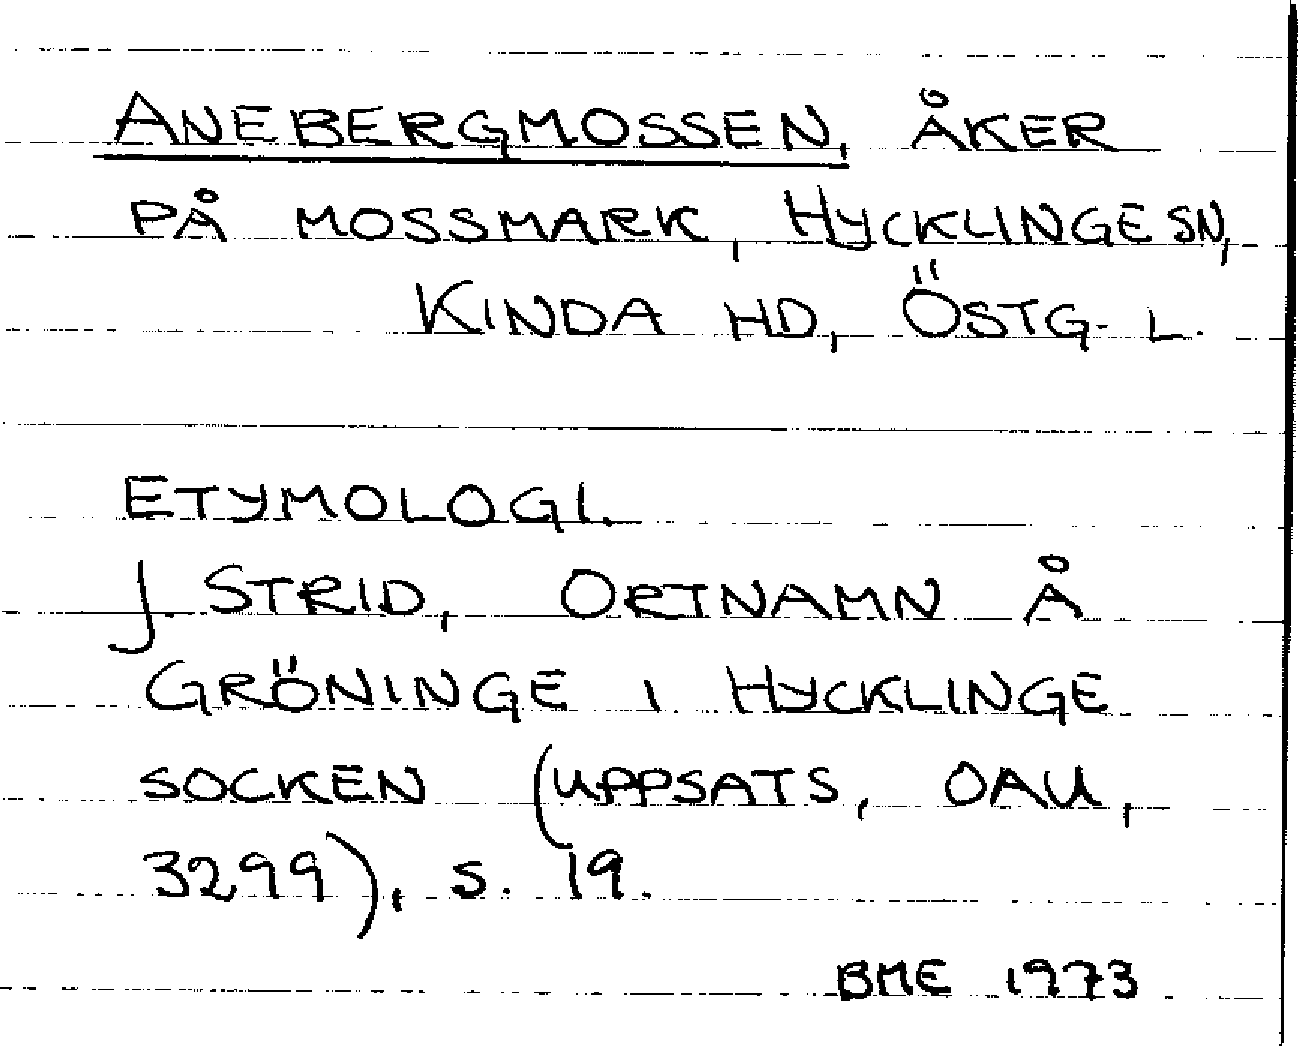 ANEBERGMOSSEN, ÅKER
PÅ MOSSMARK, HYCKLINGE SN,
KINDA HD, ÖSTG. L.
ETYMOLOGI.
J. STRID, ORTNAMN Å
GRÖNINGE I HYCKLINGE
SOCKEN (UPPSATS, OAU,
3299), S. 19.
BME 1973